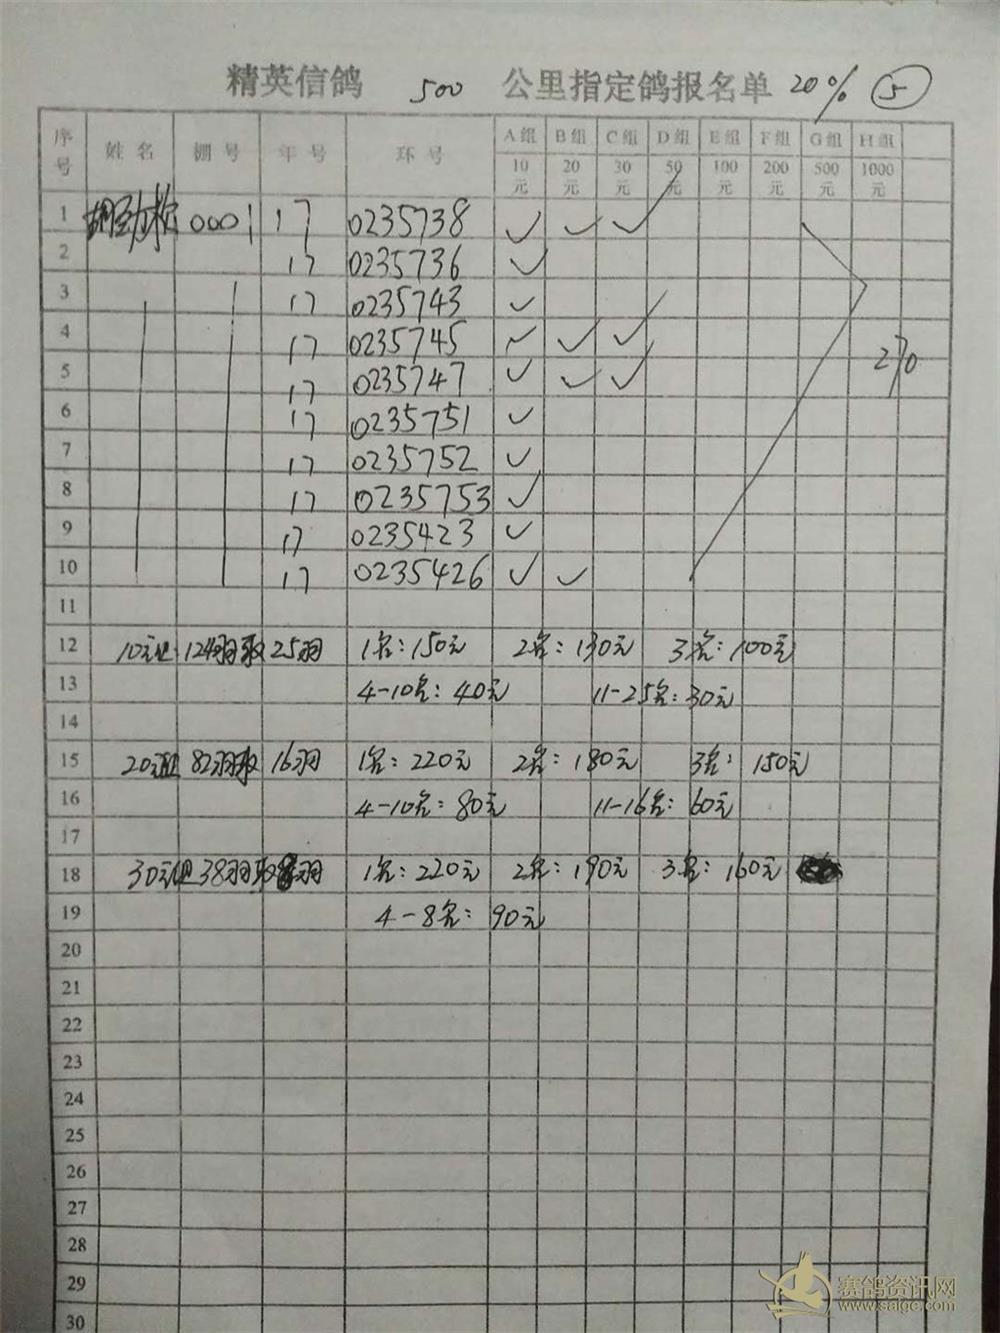 精英信鸽 500 公里指定鸽报名单 20% ⑤
序号 姓名 棚号 年号 环号 A组10元 B组20元 C组30元 D组50元 E组100元 F组200元 G组500元 H组1000元
1 胡劲松 0001 17 0235738 ✓ ✓ ✓
2 17 0235736 ✓
3 17 0235743 ✓
4 17 0235745 ✓ ✓ ✓
5 17 0235747 ✓ ✓ ✓ 270
6 17 0235751 ✓
7 17 0235752 ✓
8 17 0235753 ✓
9 17 0235423 ✓
10 17 0235426 ✓ ✓
11
12 10元组 124羽取25羽 1名:150元 2名:130元 3名:100元
13 4-10名:40元 11-25名:30元
14
15 20元组 82羽取16羽 1名:220元 2名:180元 3名:150元
16 4-10名:80元 11-16名:60元
17
18 30元组38羽取8羽 1名:220元 2名:190元 3名:160元
19 4-8名:90元
20
21
22
23
24
25
26
27
28
29
30
赛鸽资讯网
www.saige.com